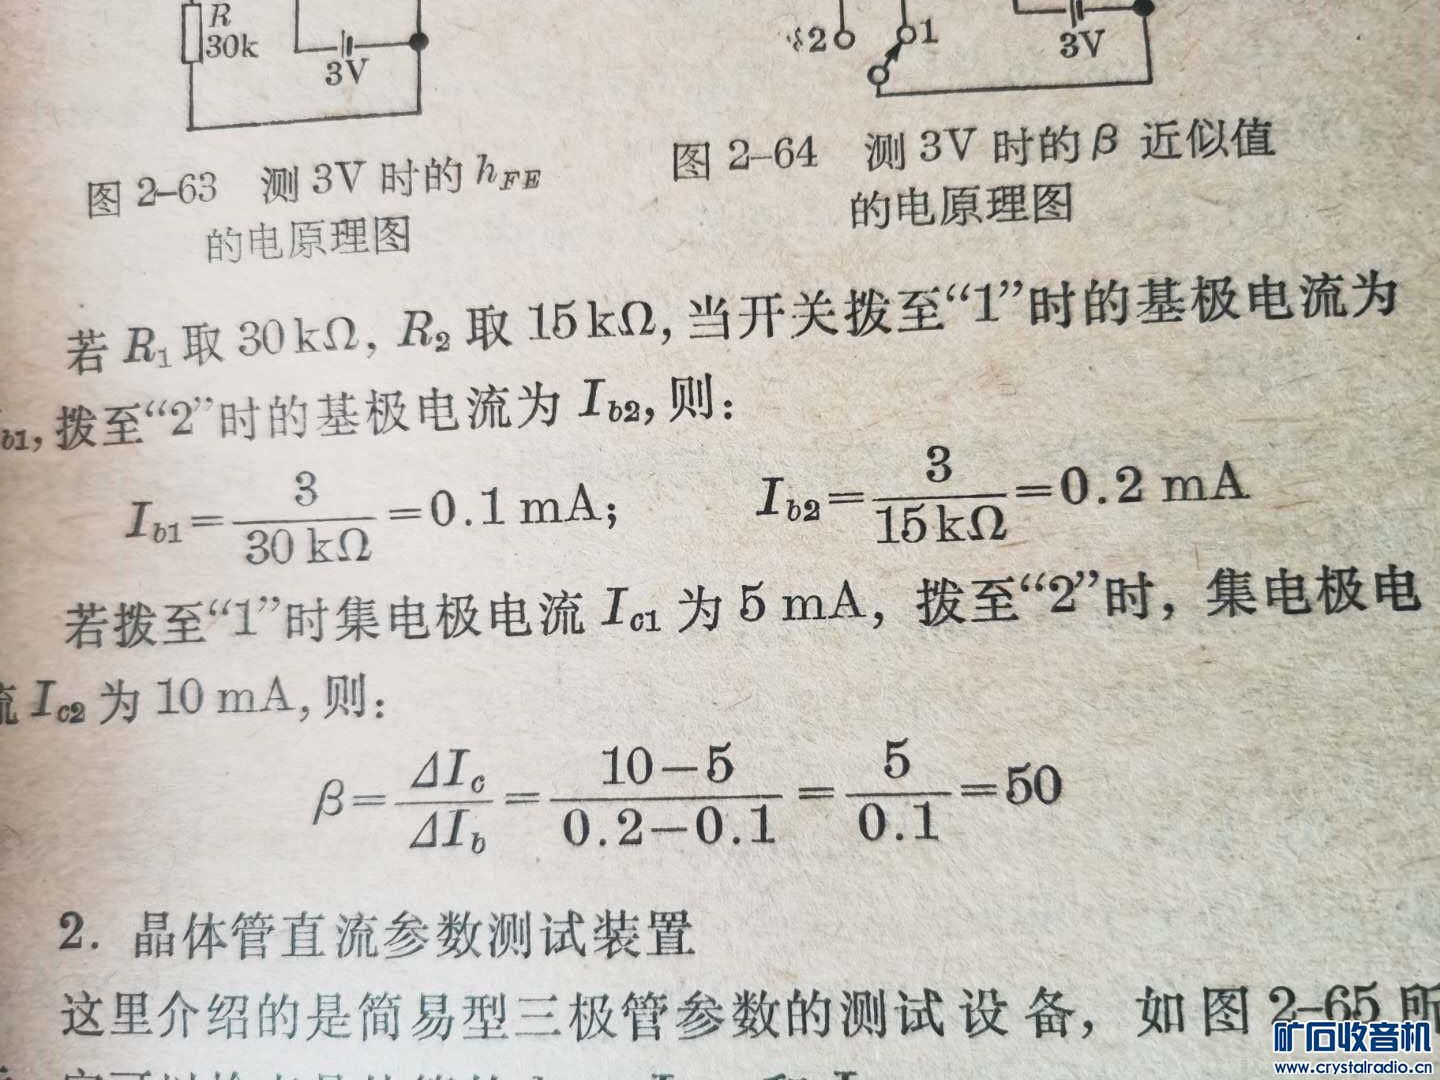 R
30k
3V
2
1
3V
图 2-63 测 3V 时的 hFE
的电原理图
图 2-64 测 3V 时的 β 近似值
的电原理图
若 R₁ 取 30 kΩ, R₂ 取 15 kΩ, 当开关拨至“1”时的基极电流为
b1, 拨至“2”时的基极电流为 Ib2, 则:
Ib1 = 3/30 kΩ = 0.1 mA; Ib2 = 3/15 kΩ = 0.2 mA
若拨至“1”时集电极电流 Ic1 为 5 mA, 拨至“2”时, 集电极电
流 Ic2 为 10 mA, 则:
β = ΔIc/ΔIb = 10-5/0.2-0.1 = 5/0.1 = 50
2. 晶体管直流参数测试装置
这里介绍的是简易型三极管参数的测试设备, 如图 2-65 所
矿石收音机
www.crystalradio.cn